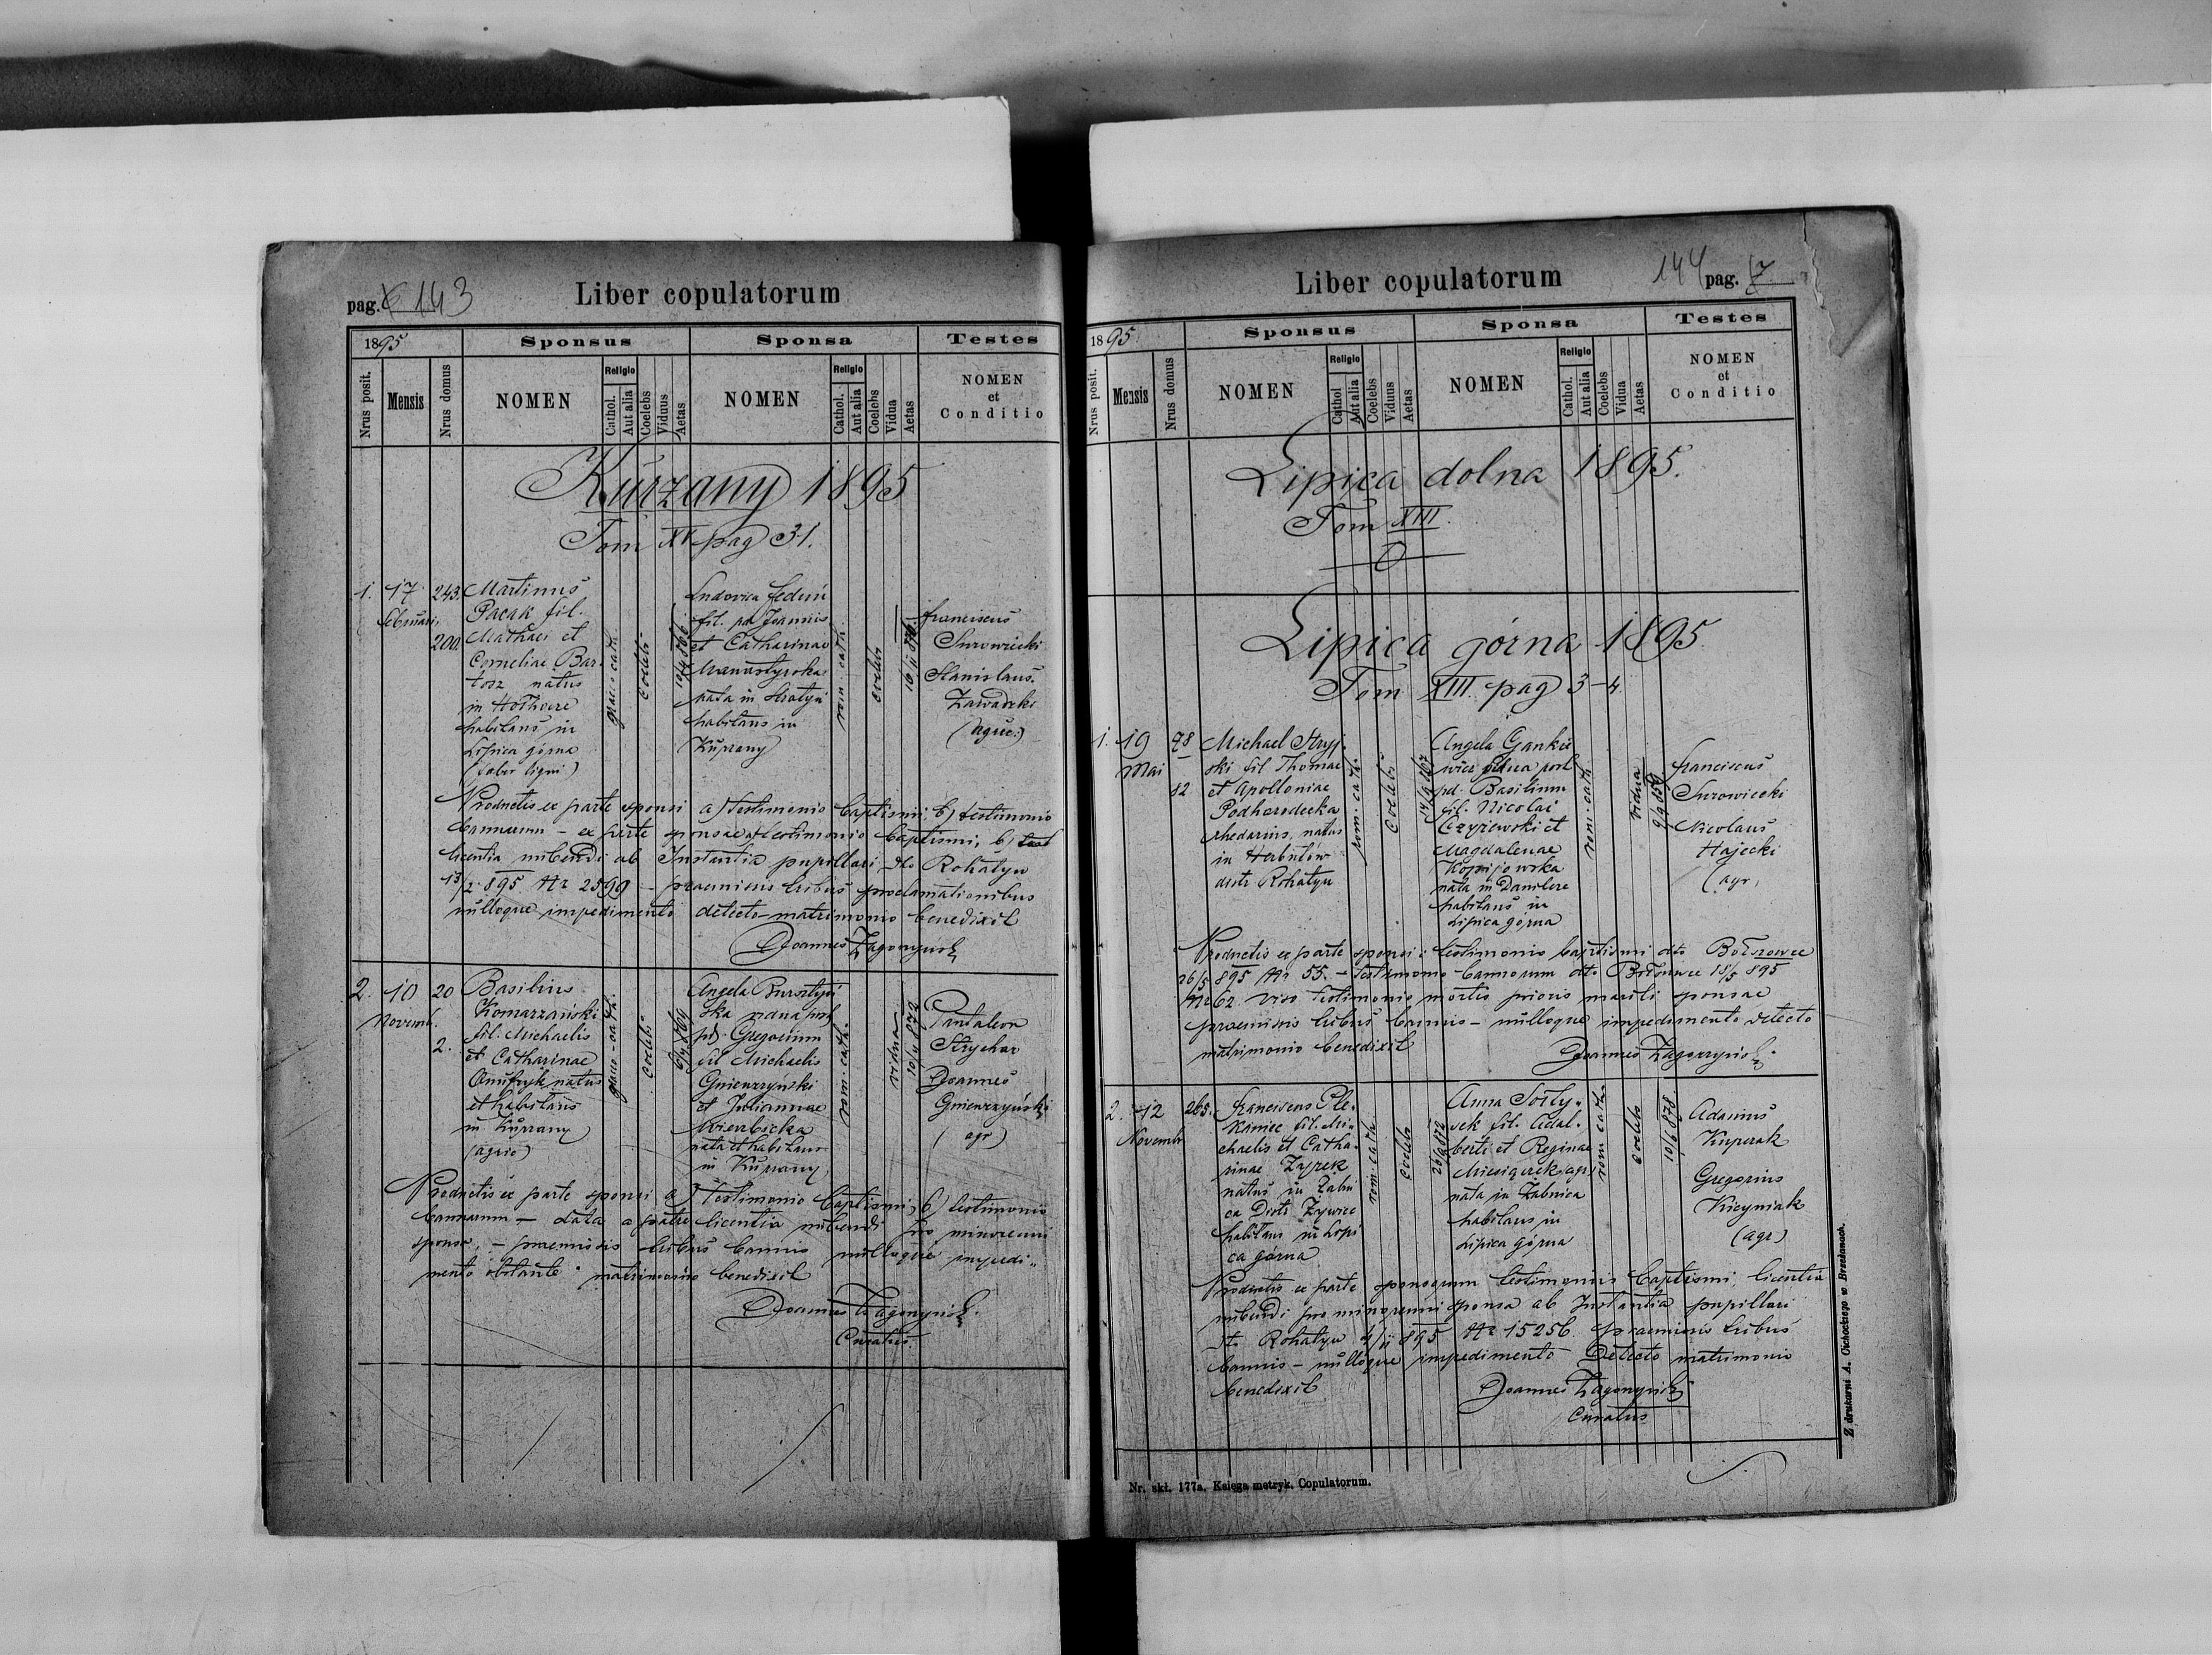 pag. 6 143
Liber copulatorum
1895
Sponsus
Sponsa
Testes
Nrus posit.
Mensis
Nrus domus
NOMEN
Religio
Cathol.
Aut alia
Coelebs
Viduus
Aetas
NOMEN
Religio
Cathol.
Aut alia
Coelebs
Vidua
Aetas
NOMEN
et
Conditio
Kurzany 1895
Tom XV pag 31.
1. 17 februari 243. 200
Martinus
Pacak fil.
Mathaei et
Corneliae Bar
tosz natus
in
habitans in
Lipica górna
(faber ligni)
graeco cath.
coelebs
Ludovica
fil. pd Joannis
et Catharinae
nata in
habitans in
Kurzany
rom. cath.
coelebs
Franciscus
Surowiecki
Stanislaus
Zawadzki
(agric.)
Productis ex parte sponsi a) testimonio baptismi, b) testimonio
bannorum - ex parte sponsae a) testimonio baptismi, b)
licentia nubendi ab Instantia pupillari dto Rohatyn
13/2 895 Nr 2599 - praemissis tribus proclamationibus
nulloque impedimento detecto matrimonio benedixit
Joannes
2. 10 Novemb. 20 2.
Basilius
Komarzański
fil. Michaelis
et Catharinae
Onufryk natus
et habitans
in Kurzany
(agric)
graeco-cath.
coelebs
Angela Bursztyń
ska vidua post
pd. Gregorium
fil Michaelis
Gniewrzyński
et Juliannae
Wierzbicka
nata et habitans
in Kurzany
rom. cath.
vidua
Pantaleon
Strychar
Joannes
Gniewrzyński
(agr)
Productis ex parte sponsi a) testimonio baptismi, b) testimonio
bannorum - data a patre licentia nubendi pro minorenni
sponso, - praemissis tribus bannis nulloque impedi„
mento obstante matrimonio benedixit
Joannes
Curatus
Liber copulatorum
144 pag. 7
1895
Sponsus
Sponsa
Testes
Nrus posit.
Mensis
Nrus domus
NOMEN
Religio
Cathol
Aut alia
Coelebs
Viduus
Aetas
NOMEN
Religio
Cathol.
Aut alia
Coelebs
Vidua
Aetas
NOMEN
et
Conditio
Lipica dolna 1895.
Tom XIII.
0
Lipica górna 1895
Tom XIII. pag 3-4.
1. 19 Mai 78 12
Michael Stryj
ski fil Thomae
et Apolloniae
Podhorodecka
rhedarius, natus
in Herbutów
distr Rohatyn
rom. cath.
coelebs
Angela Gankie
wicz vidua post
pd. Basilium
fil. Nicolai
Czyżewski et
Magdalenae
Kopijowska
nata in
habitans in
Lipica górna
rom. cath.
vidua
Franciscus
Surowiecki
Nicolaus
Hajecki
(agr)
Productis ex parte sponsi: testimonio baptismi dto Bołszowce
26/5 895 Nr 55. - testimonio bannorum dto Bołszowce 18/5 895
Nr 62. viso testimonio mortis prioris mariti sponsae
praemissis tribus bannis - nulloque impedimento detecto
matrimonio benedixit
Joannes
2. 12 Novemb 265.
Franciscus Ple„
kaniec fil. Mi„
chaelis et Catha„
rinae Zyrek
natus in Żabni
ca Distr Żywiec
habitans in Lipi
ca górna
rom. cath
coelebs
Anna Sołty„
sek fil. Adal„
berti et Reginae
nata in Żabnica
habitans in
Lipica górna
rom cath.
coelebs
10/6 878
Adamus
Kuperak
Gregorius
Kicyniak
(agr)
Productis ex parte sponsorum testimoniis baptismi, licentia
nubendi pro minorenni sponsa ab Instantia pupillari
dto Rohatyn 4/11 895 Nr 15256. praemissis tribus
bannis - nulloque impedimento detecto matrimonio
benedixit
Joannes
Curatus
Nr. skł. 177a. Księga metryk. Copulatorum.
Z drukarni A. Cichockiego w Brzeżanach.